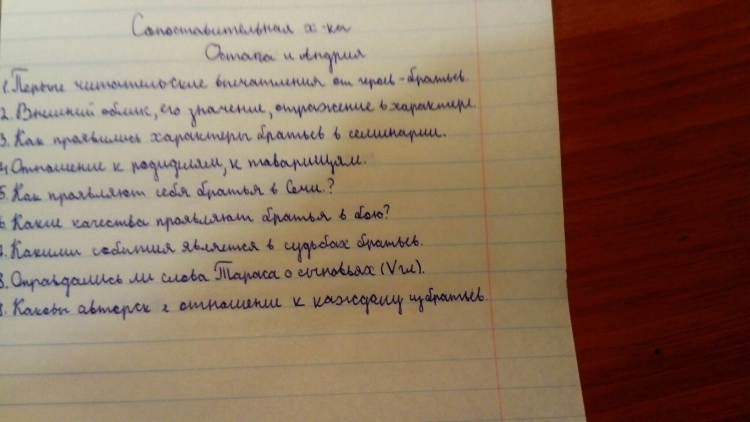 Сопоставительная х-ка
Остапа и Андрия
1. Первые читательские впечатления от героев-братьев.
2. Внешний облик, его значение, отражение в характере.
3. Как проявились характеры братьев в семинарии.
4. Отношение к родидилям, к товарищям.
5. Как проявляют себя братья в Сечи?
6. Какие качества проявляют братья в бою?
7. Какими события является в судьбах братьев.
8. Оправдались ли слова Тараса о сыновьях (V гл).
9. Каковы авторск е отношении к каждому из братьев.